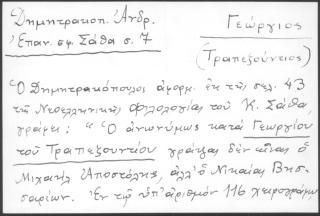 Δημητρακοπ. Ἀνδρ.
Γεώργιος
Ἐπαν. σφ. Σάθα σ. 7
(Τραπεζούντιος)
Ὁ Δημητρακόπουλος ἀφορμ. ἐκ τῆς σελ. 43
τῆς Νεοελληνικῆς Φιλολογίας τοῦ Κ. Σάθα
γράφει: " Ὁ ἀνωνύμως κατὰ Γεωργίου
τοῦ Τραπεζουντίου γράψας δὲν εἶναι ὁ
Μιχαὴλ Ἀποστόλης, ἀλλ' ὁ Νικαίας Βησ-
σαρίων. Ἐν τῷ ὑπ' ἀριθμὸν 116 χειρογράφῳ